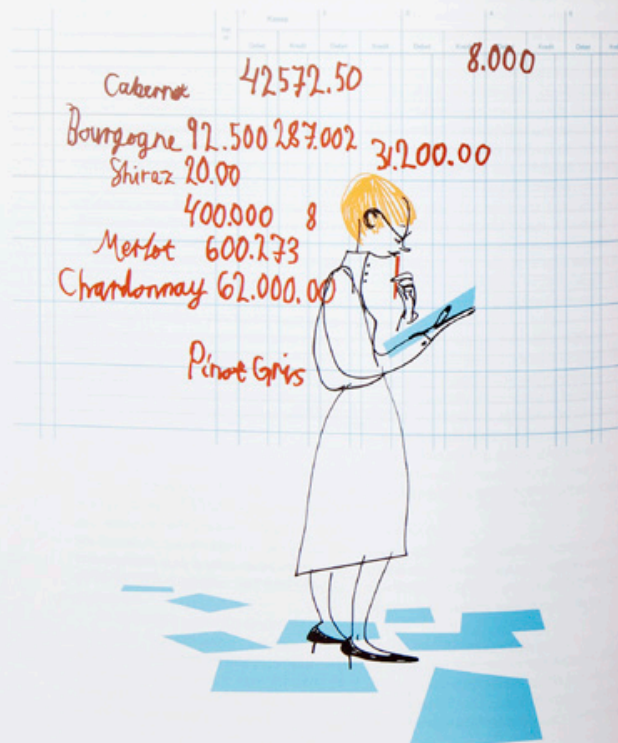 8.000
Cabernet 42572.50
Bourgogne 92.500 287.002 31.200.00
Shiraz 20.00
400.000 8
Merlot 600.273
Chardonnay 62.000.00
Pinot Gris